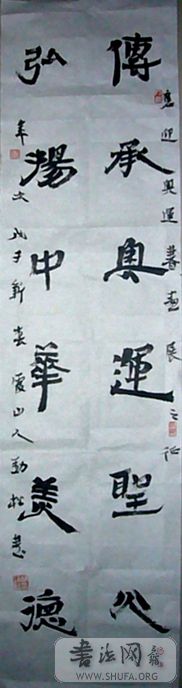 喜迎奥运書畫展之征
傳承奥運聖火
弘揚中華美德
戊子新春霞山人勁松書
書法网
WWW.SHUFA.ORG